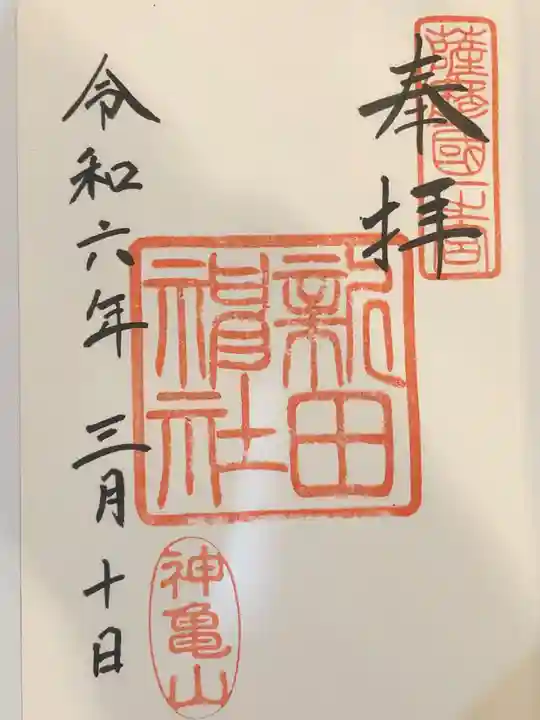 薩摩國一之宮
奉拝
新田
神社
令和六年 三月 十日
神亀山